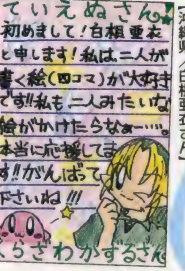 ていえぬさん
初めまして！白根亜衣
と申します！私は二人が
書く絵(四コマ)が大好き
です!!私も二人みたいな
絵がかけたらなぁ…。
本当に応援してま
す!!がんばって
下さいね!!!
さわかずるさん